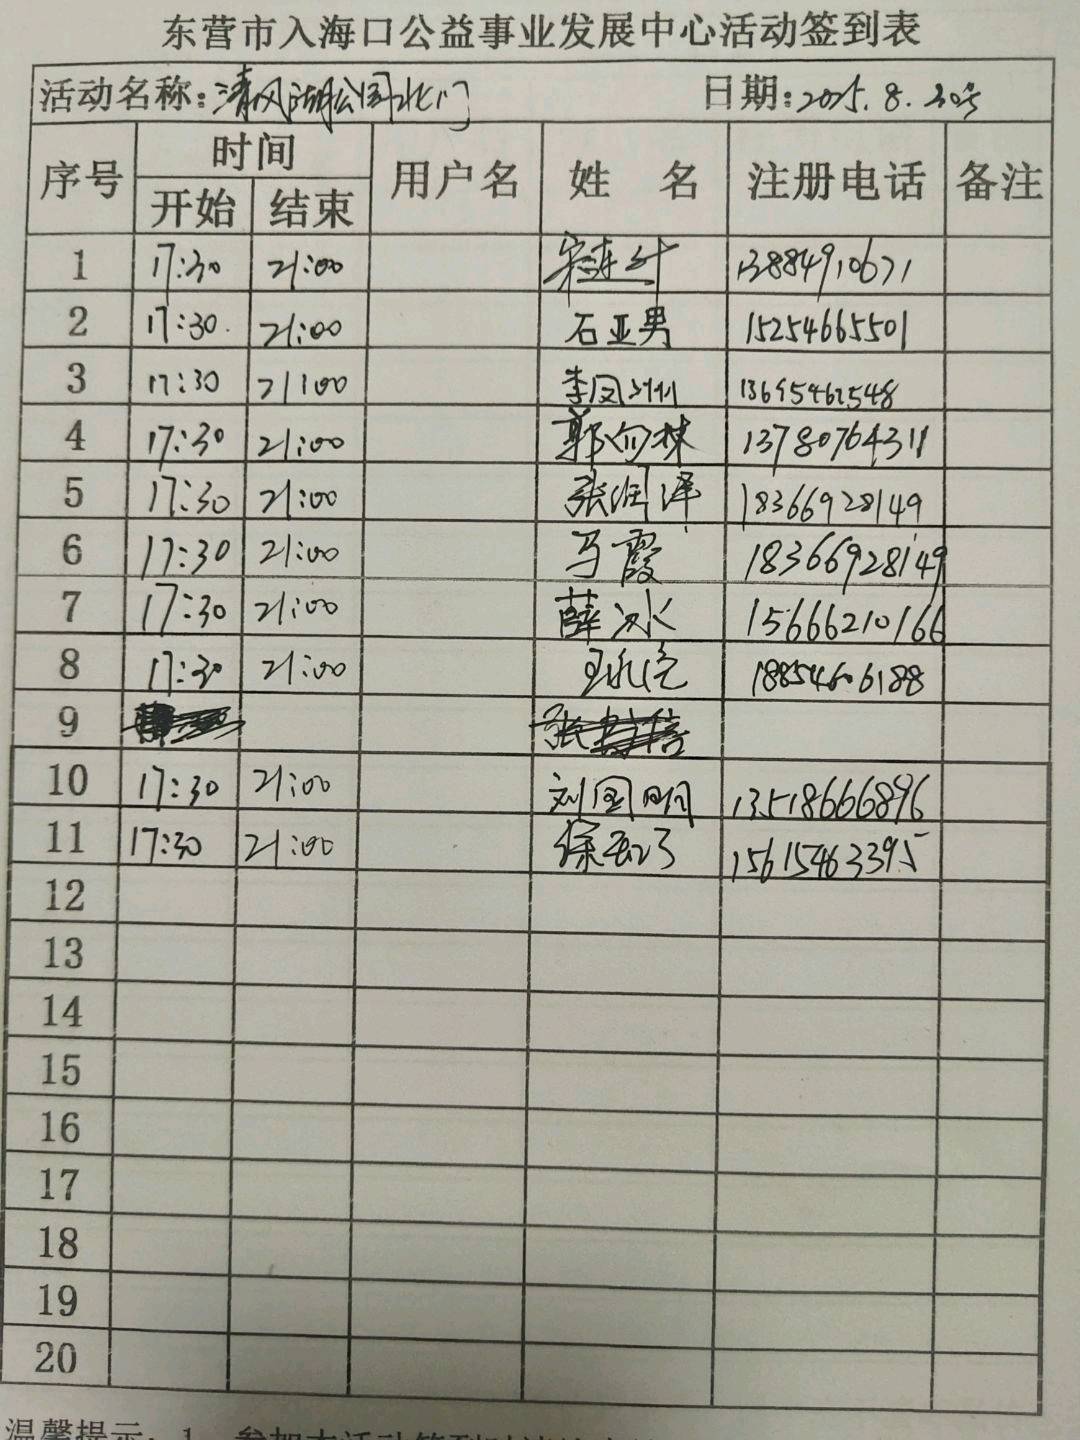 东营市入海口公益事业发展中心活动签到表
活动名称:清风湖公园北门 日期:2025.8.20号
序号 时间 用户名 姓 名 注册电话 备注
开始 结束
1 17:30 21:00 13884910671
2 17:30. 21:00 石亚男 15254665501
3 17:30 21:00 李凤 13695462548
4 17:30 21:00 郭向林 13780764311
5 17:30 21:00 张润泽 18366928149
6 17:30 21:00 马霞 18366928149
7 17:30 21:00 薛冰 15666210166
8 17:30 21:00 18854606188
9 张
10 17:30 21:00 刘国明 13518666896
11 17:30 21:00 徐 15615463395
12
13
14
15
16
17
18
19
20
温馨提示:1、参加本活动签到时请